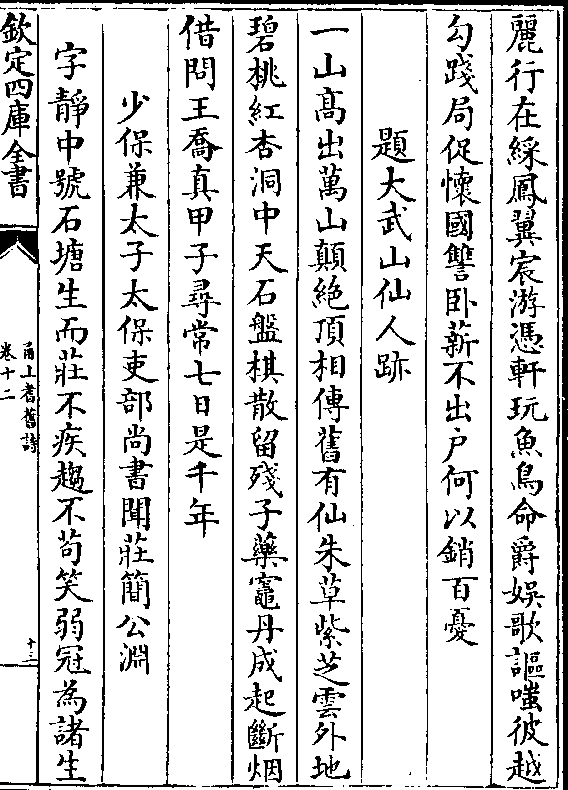 麗行在綵鳳翼宸游憑軒玩魚鳥命爵娛歌謳嗤彼越
勾踐局促懷國讐卧薪不出户何以銷百憂
題大武山仙人跡
一山高出萬山顛絶頂相傳舊有仙朱草紫芝雲外地
碧桃紅杏洞中天石盤棋散留殘子藥竈丹成起斷烟
借問王喬真甲子尋常七日是千年
少保兼太子太保吏部尚書聞莊簡公淵
字靜中號石塘生而莊不疾趨不苟笑弱冠為諸生
欽定四庫全書
甬上耆舊詩
卷十二
十三